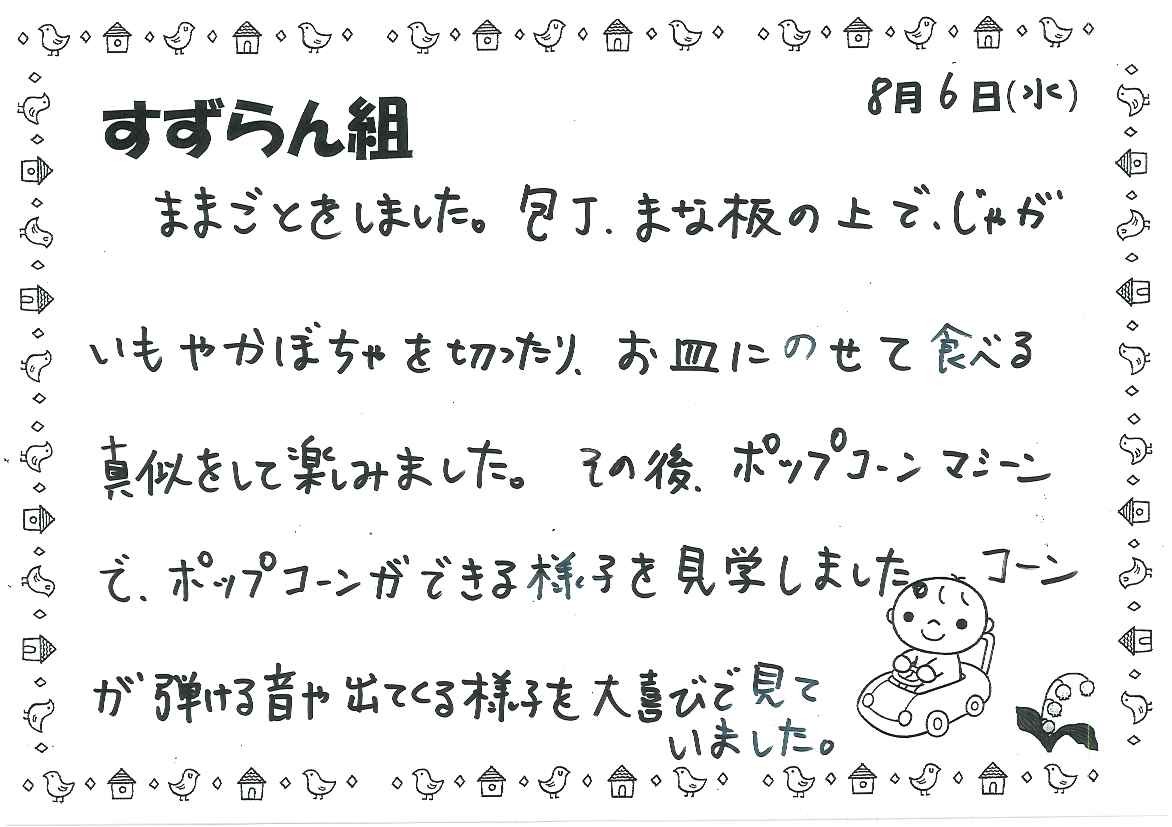 8月6日(水)
すずらん組
ままごとをしました。包丁、まな板の上で、じゃが
いもやかぼちゃを切ったり、お皿にのせて食べる
真似をして楽しみました。その後、ポップコーンマシーン
で、ポップコーンができる様子を見学しました。コーン
が弾ける音や出てくる様子を大喜びで見て
いました。